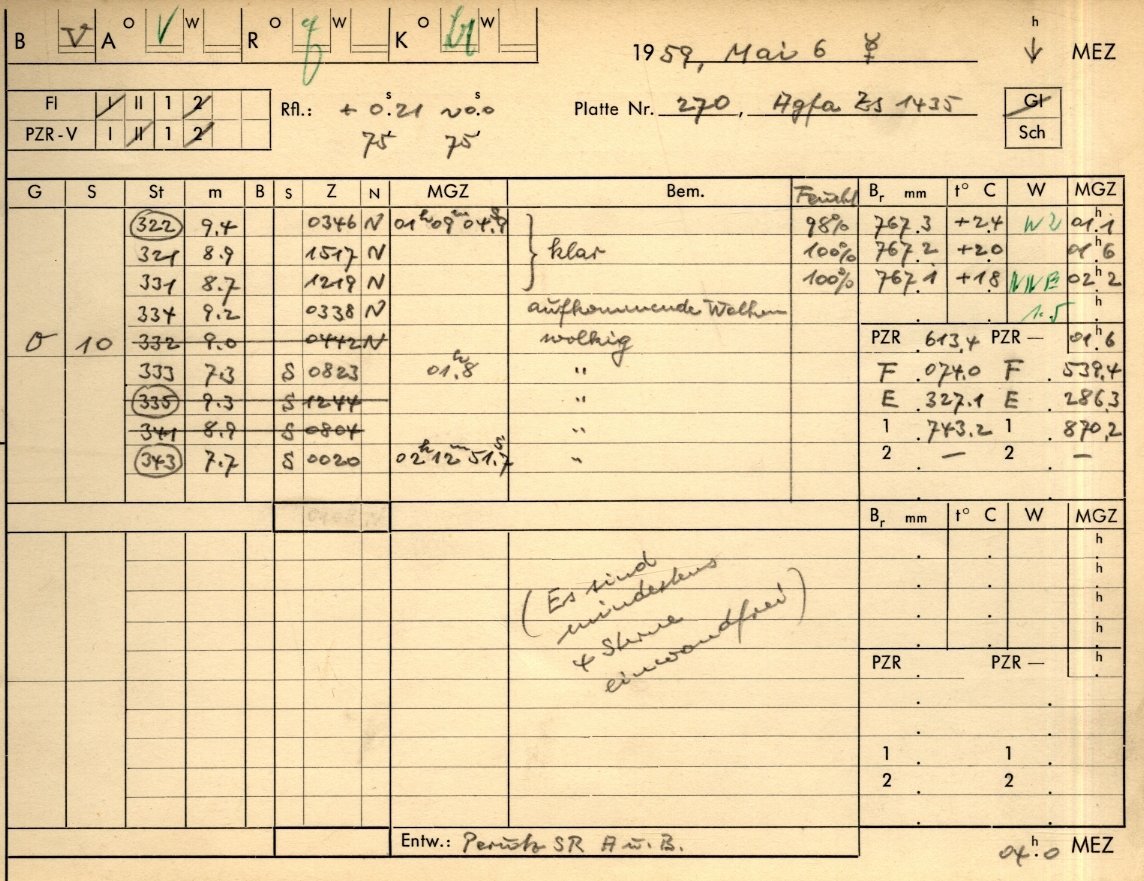 B V A O V W R O q W K O br W
1959, Mai 6 ☿ h ↓ MEZ
FI I II 1 2 Rfl.: + 0.21 s ~0.0 s Platte Nr. 270, Agfa Zs 1435 Gl
PZR-V I II 1 2 75 75 Sch
G S St m B S Z N MGZ Bem. Feucht Br mm t° C W MGZ
322 9.4 0346 N 01h 09m 04.9s 98% 767.3 +2.4 W2 01h.1
321 8.9 1517 N klar 100% 767.2 +2.0 01h.6
331 8.7 1219 N 100% 767.1 +1.8 NNE 02h.2
334 9.2 0338 N aufkommende Wolken 1.5 h
σ 10 332 9.0 0442 N wolkig PZR 613.4 PZR — 01h.6
333 7.3 S 0823 01h.8 " F .074.0 F 539.4
335 9.3 S 1244 " E .327.1 E 286.3
341 8.9 S 0804 " 1 .743.2 1 870.2
343 7.7 S 0020 02h 12m 51.7s " 2 — 2 —
Br mm t° C W MGZ
h
h
h
h
(Es sind
mindestens
4 Sterne
einwandfrei)
PZR PZR — h
1 1
2 2
Entw.: Perutz SR A u. B. 04h.0 MEZ